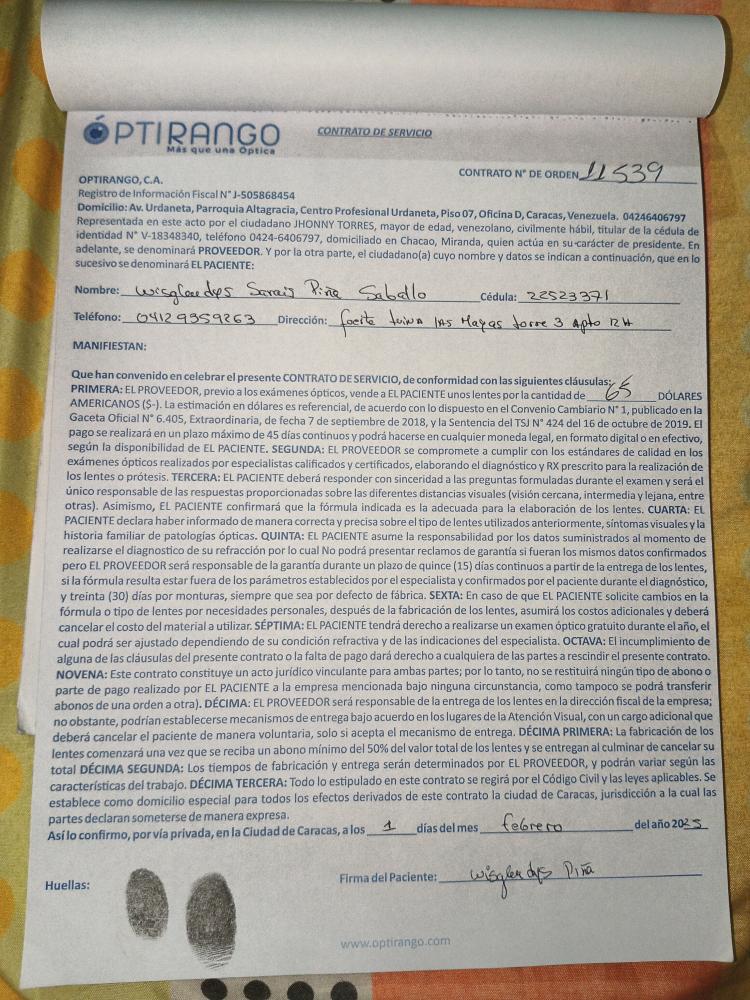 ÓPTIRANGO
Más que una Óptica
CONTRATO DE SERVICIO
CONTRATO N° DE ORDEN 11539
OPTIRANGO, C.A.
Registro de Información Fiscal N° J-505868454
Domicilio: Av. Urdaneta, Parroquia Altagracia, Centro Profesional Urdaneta, Piso 07, Oficina D, Caracas, Venezuela. 04246406797
Representada en este acto por el ciudadano JHONNY TORRES, mayor de edad, venezolano, civilmente hábil, titular de la cédula de
identidad N° V-18348340, teléfono 0424-6406797, domiciliado en Chacao, Miranda, quien actúa en su carácter de presidente. En
adelante, se denominará PROVEEDOR. Y por la otra parte, el ciudadano(a) cuyo nombre y datos se indican a continuación, que en lo
sucesivo se denominará EL PACIENTE:
Nombre: Wisgleidys Sarais Piña Cédula: 22523371
Teléfono: 04129359263 Dirección: foerte tiuna las Mayas torre 3 Apto 12 H
MANIFIESTAN:
Que han convenido en celebrar el presente CONTRATO DE SERVICIO, de conformidad con las siguientes cláusulas:
PRIMERA: EL PROVEEDOR, previo a los exámenes ópticos, vende a EL PACIENTE unos lentes por la cantidad de 65 DÓLARES
AMERICANOS ($-). La estimación en dólares es referencial, de acuerdo con lo dispuesto en el Convenio Cambiario N° 1, publicado en la
Gaceta Oficial N° 6.405, Extraordinaria, de fecha 7 de septiembre de 2018, y la Sentencia del TSJ N° 424 del 16 de octubre de 2019. El
pago se realizará en un plazo máximo de 45 días continuos y podrá hacerse en cualquier moneda legal, en formato digital o en efectivo,
según la disponibilidad de EL PACIENTE. SEGUNDA: EL PROVEEDOR se compromete a cumplir con los estándares de calidad en los
exámenes ópticos realizados por especialistas calificados y certificados, elaborando el diagnóstico y RX prescrito para la realización de
los lentes o prótesis. TERCERA: EL PACIENTE deberá responder con sinceridad a las preguntas formuladas durante el examen y será el
único responsable de las respuestas proporcionadas sobre las diferentes distancias visuales (visión cercana, intermedia y lejana, entre
otras). Asimismo, EL PACIENTE confirmará que la fórmula indicada es la adecuada para la elaboración de los lentes. CUARTA: EL
PACIENTE declara haber informado de manera correcta y precisa sobre el tipo de lentes utilizados anteriormente, síntomas visuales y la
historia familiar de patologías ópticas. QUINTA: EL PACIENTE asume la responsabilidad por los datos suministrados al momento de
realizarse el diagnostico de su refracción por lo cual No podrá presentar reclamos de garantía si fueran los mismos datos confirmados
pero EL PROVEEDOR será responsable de la garantía durante un plazo de quince (15) días continuos a partir de la entrega de los lentes,
si la fórmula resulta estar fuera de los parámetros establecidos por el especialista y confirmados por el paciente durante el diagnóstico,
y treinta (30) días por monturas, siempre que sea por defecto de fábrica. SEXTA: En caso de que EL PACIENTE solicite cambios en la
fórmula o tipo de lentes por necesidades personales, después de la fabricación de los lentes, asumirá los costos adicionales y deberá
cancelar el costo del material a utilizar. SÉPTIMA: EL PACIENTE tendrá derecho a realizarse un examen óptico gratuito durante el año, el
cual podrá ser ajustado dependiendo de su condición refractiva y de las indicaciones del especialista. OCTAVA: El incumplimiento de
alguna de las cláusulas del presente contrato o la falta de pago dará derecho a cualquiera de las partes a rescindir el presente contrato.
NOVENA: Este contrato constituye un acto jurídico vinculante para ambas partes; por lo tanto, no se restituirá ningún tipo de abono o
parte de pago realizado por EL PACIENTE a la empresa mencionada bajo ninguna circunstancia, como tampoco se podrá transferir
abonos de una orden a otra). DÉCIMA: EL PROVEEDOR será responsable de la entrega de los lentes en la dirección fiscal de la empresa;
no obstante, podrían establecerse mecanismos de entrega bajo acuerdo en los lugares de la Atención Visual, con un cargo adicional que
deberá cancelar el paciente de manera voluntaria, solo si acepta el mecanismo de entrega. DÉCIMA PRIMERA: La fabricación de los
lentes comenzará una vez que se reciba un abono mínimo del 50% del valor total de los lentes y se entregan al culminar de cancelar su
total DÉCIMA SEGUNDA: Los tiempos de fabricación y entrega serán determinados por EL PROVEEDOR, y podrán variar según las
características del trabajo. DÉCIMA TERCERA: Todo lo estipulado en este contrato se regirá por el Código Civil y las leyes aplicables. Se
establece como domicilio especial para todos los efectos derivados de este contrato la ciudad de Caracas, jurisdicción a la cual las
partes declaran someterse de manera expresa.
Así lo confirmo, por vía privada, en la Ciudad de Caracas, a los 1 días del mes febrero del año 2025
Huellas:
Firma del Paciente: Wisgleidys Piña
www.optirango.com